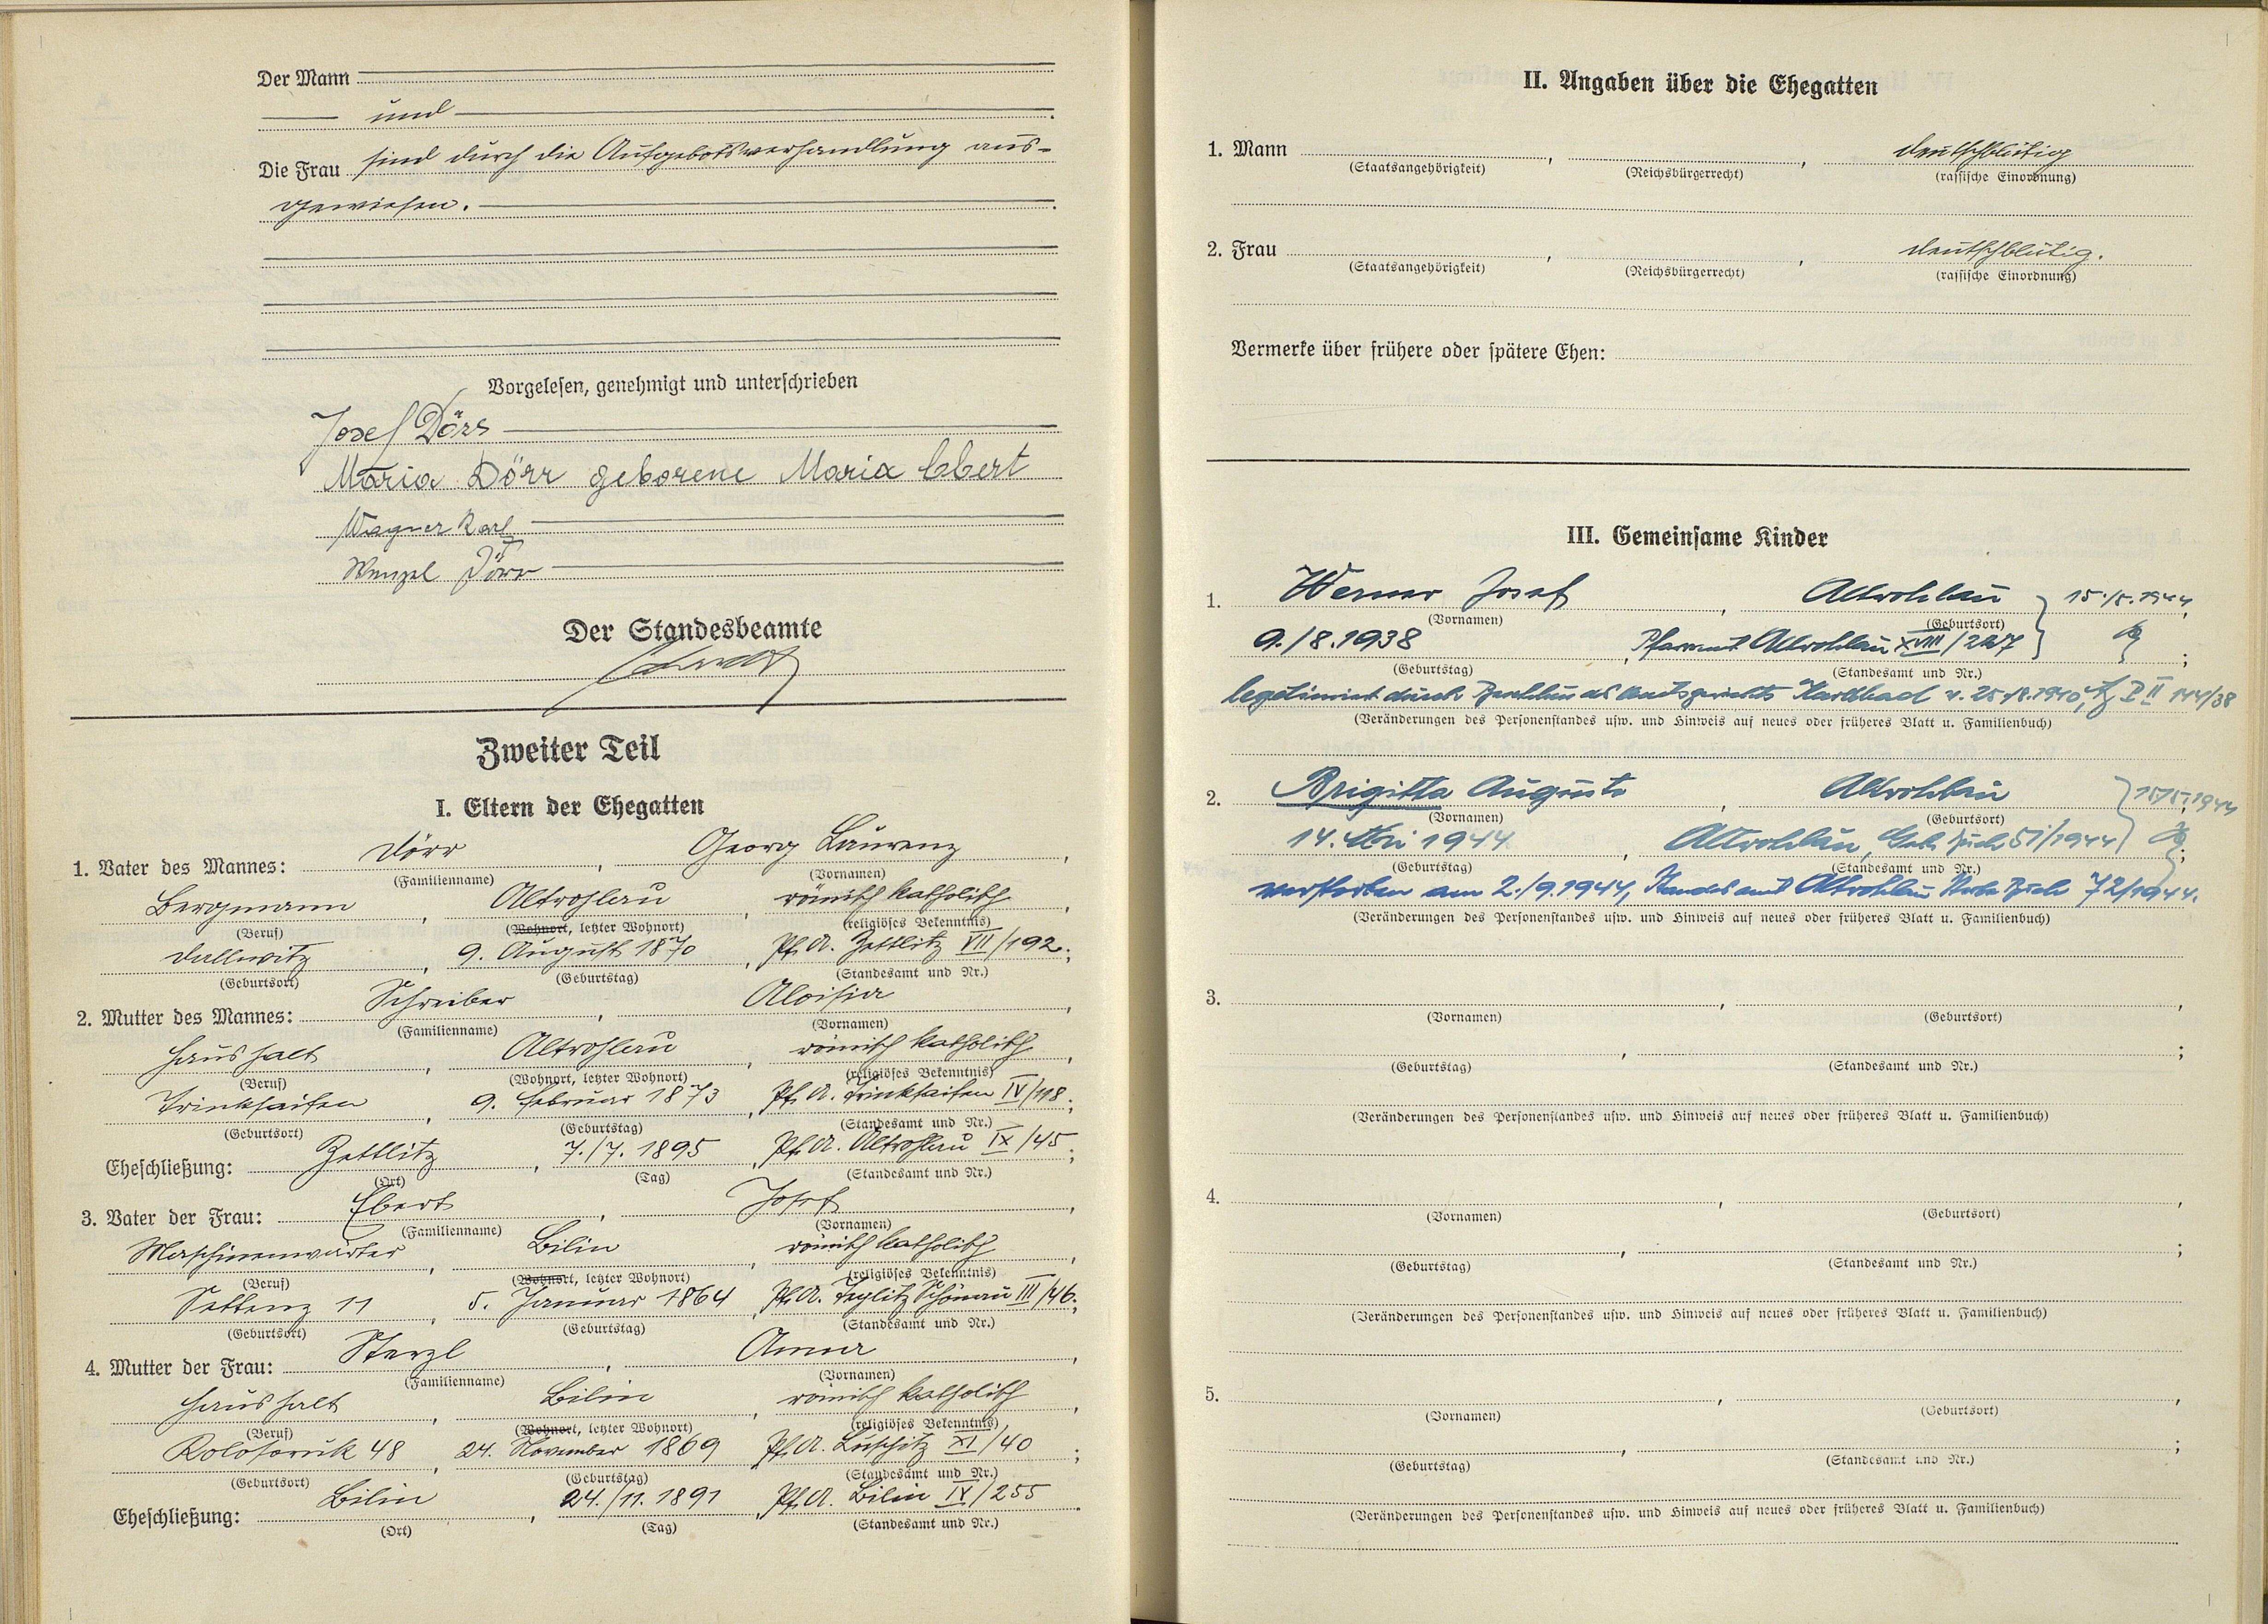 Der Mann
und
Die Frau sind durch die Aufgebotsverhandlung aus-
gewiesen.
Vorgelesen, genehmigt und unterschrieben
Josef Dörr
Maria Dörr geborene Maria Ebert
Wagner Karl
Wenzel Dörr
Der Standesbeamte
Zweiter Teil
I. Eltern der Ehegatten
1. Vater des Mannes: Dörr, Georg Laurenz,
(Familienname) (Vornamen)
Bergmann, Altrohlau, römisch katholisch,
(Beruf) (Wohnort, letzter Wohnort) (religiöses Bekenntnis)
Dallwitz, 9. August 1870, Pf. A. Zettlitz VII/192;
(Geburtsort) (Geburtstag) (Standesamt und Nr.)
2. Mutter des Mannes: Schreiber, Aloisia,
(Familienname) (Vornamen)
Haushalt, Altrohlau, römisch katholisch,
(Beruf) (Wohnort, letzter Wohnort) (religiöses Bekenntnis)
Trinksaifen, 9. Februar 1873, Pf. A. Trinksaifen IV/118;
(Geburtsort) (Geburtstag) (Standesamt und Nr.)
Eheschließung: Zettlitz, 7./7. 1895, Pf. A. Altrohlau IX/45;
(Ort) (Tag) (Standesamt und Nr.)
3. Vater der Frau: Ebert, Josef,
(Familienname) (Vornamen)
Maschinenwärter, Bilin, römisch katholisch,
(Beruf) (Wohnort, letzter Wohnort) (religiöses Bekenntnis)
Settenz 11, 5. Januar 1864, Pf. A. Teplitz Schönau III/46;
(Geburtsort) (Geburtstag) (Standesamt und Nr.)
4. Mutter der Frau: Sterzl, Anna,
(Familienname) (Vornamen)
Haushalt, Bilin, römisch katholisch,
(Beruf) (Wohnort, letzter Wohnort) (religiöses Bekenntnis)
Kolosoruk 48, 24. November 1869, Pf. A. Luschitz XI/40;
(Geburtsort) (Geburtstag) (Standesamt und Nr.)
Eheschließung: Bilin, 24./11. 1891, Pf. A. Bilin IV/255.
(Ort) (Tag) (Standesamt und Nr.)
II. Angaben über die Ehegatten
1. Mann , , deutschblütig
(Staatsangehörigkeit) (Reichsbürgerrecht) (rassische Einordnung)
2. Frau , , deutschblütig.
(Staatsangehörigkeit) (Reichsbürgerrecht) (rassische Einordnung)
Vermerke über frühere oder spätere Ehen:
III. Gemeinsame Kinder
1. Werner Josef, Altrohlau 15./5. 1944,
(Vornamen) (Geburtsort)
9./8. 1938, Pfarramt Altrohlau XVIII/227;
(Geburtstag) (Standesamt und Nr.)
legitimiert durch Beschluss des Amtsgerichts Karlsbad v. 25./8. 1940, P II 144/38
(Veränderungen des Personenstandes usw. und Hinweis auf neues oder früheres Blatt u. Familienbuch)
2. Brigitta Auguste, Altrohlau 15/5. 1944
(Vornamen) (Geburtsort)
14. Mai 1944, Altrohlau, Geb. Buch 51/1944;
(Geburtstag) (Standesamt und Nr.)
verstorben am 2./9. 1944, Standesamt Altrohlau Sterbe Buch 72/1944.
(Veränderungen des Personenstandes usw. und Hinweis auf neues oder früheres Blatt u. Familienbuch)
3. , ,
(Vornamen) (Geburtsort)
, ;
(Geburtstag) (Standesamt und Nr.)
(Veränderungen des Personenstandes usw. und Hinweis auf neues oder früheres Blatt u. Familienbuch)
4. , ,
(Vornamen) (Geburtsort)
, ;
(Geburtstag) (Standesamt und Nr.)
(Veränderungen des Personenstandes usw. und Hinweis auf neues oder früheres Blatt u. Familienbuch)
5. , ,
(Vornamen) (Geburtsort)
, ;
(Geburtstag) (Standesamt und Nr.)
(Veränderungen des Personenstandes usw. und Hinweis auf neues oder früheres Blatt u. Familienbuch)